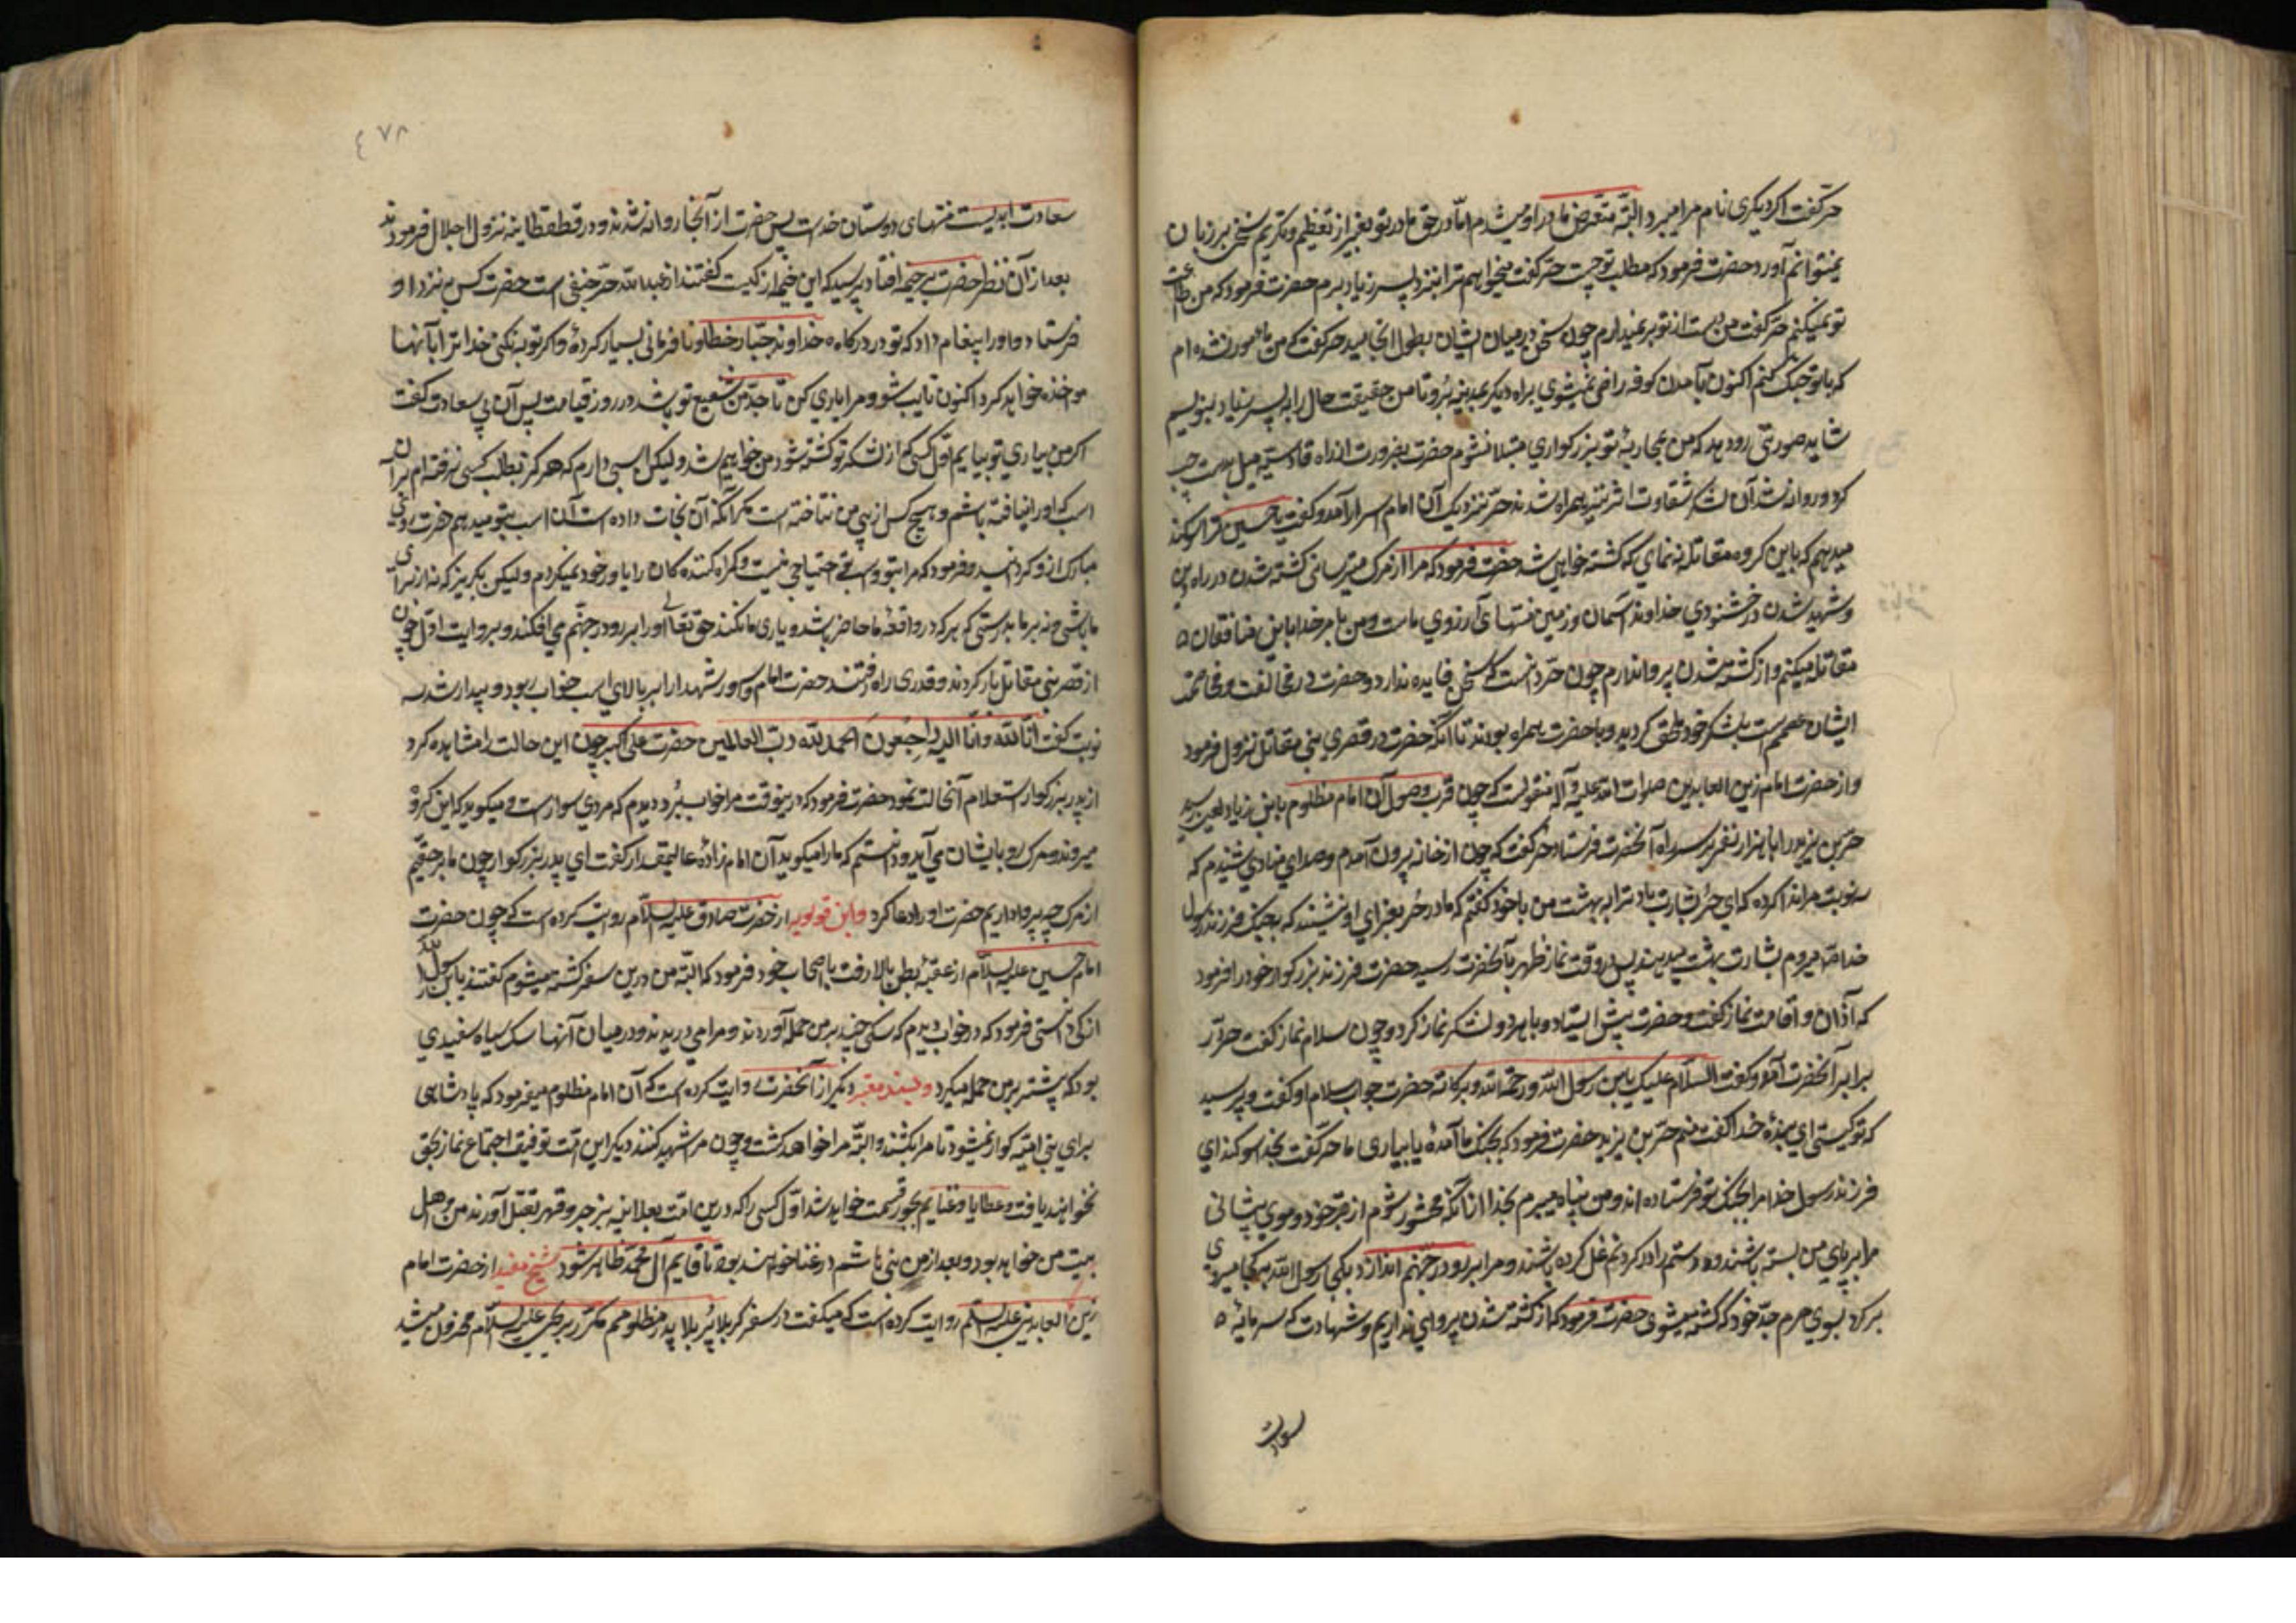 حر گفت اگر دیگری نام مرا میبرد البتّه متعرض مادر او میشدم امّا در حق مادر تو بغیر از تعظیم و تکریم سخن بر زبان
نمیتوانم آورد حضرت فرمود که مطلب تو چیست حر گفت میخواهم ترا بنزد پسر زیاد برم حضرت فرمود که من متابعت
تو نمیکنم حر گفت من دست از تو بر نمیدارم چون سخن در میان ایشان بطول انجامید حر گفت که من مامور نشده ام
که با تو جنک کنم اکنون بآمدن کوفه راضی نمیشوی براه دیگر غیر مدینه برو تا من حقیقت حال را به پسر زیاد بنویسم
شاید صورتی رو دهد که من بمحاربهٔ تو بزرکواری مبتلا نشوم حضرت بضرورت از راه قادسیّه میل بدست چپ
کرد و روان شد آن لشکر شقاوت اثر نیز همراه شدند حرّ نزدیک آن امام ابرار آمد و گفت یا حسین ترا سوکند
میدهم که با این کروه مقاتله ننمای که کشته خواهی شد حضرت فرمود که مرا از مرک میترسانی کشته شدن در راه دین
و شهید شدن در خشنودی خداوند آسمان و زمین منتهای آرزوی ماست و من بامر خدا با این منافقان
مقاتله میکنم و از کشته شدن پروا ندارم چون حرّ دانست که سخن فایده ندارد و حضرت در مخالفت و مخاصمت
ایشان مصمم است بلشکر خود ملحق کردید و با حضرت همراه بودند تا آنکه حضرت در قصر بنی مقاتل نزول فرمود
و از حضرت امام زین العابدین صلوات الله علیه و آله منقولست که چون قرب وصول آن امام مظلوم بابن زیاد لعین رسید
حر بن یزید را با هزار نفر بر سر راه آنحضرت فرستاد حر گفت که چون از خانه بیرون آمدم صدای منادی شنیدم که
سه نوبت مرا ندا کرده که ای حرّ بشارت باد ترا به بهشت من با خود گفتم که مادر حر بعزای او نشیند که بجنک فرزند رسول
خدا میروم بشارت بهشت میدهند پس در وقت نماز ظهر بآنحضرت رسید حضرت فرزند بزرکوار خود را فرمود
که آذان و اقامت نماز گفت و حضرت پیش ایستاد و با هر دو لشکر نماز کرد و چون سلام نماز گفت حر در
برابر آنحضرت آمد و گفت السّلام علیک یا بن رسول الله و رحمة الله و برکاته حضرت جواب سلام او گفت و پرسید
که تو کیستی ای بندهٔ خدا گفت منم حرّ بن یزید حضرت فرمود که بجنک ما آمدهٔ یا بیاری ما حر گفت بخدا سوکند ای
فرزند رسول خدا مرا بجنک تو فرستاده اند و من پناه میبرم بخدا از آنکه محشور شوم از قبر خود و موی پیشانی
مرا بر پای من بسته باشند و دستم را در کردنم غل کرده باشند و مرا برو در جهنم اندازند یا بن رسول الله بکجا میروی
بر کرد بسوی حرم جدّ خود که کشته میشوی حضرت فرمود که از کشته شدن پروای نداریم و شهادت که سرمایهٔ
سعادت
٤٧٨
سعادت ابدیست منتهای دوستان خداست پس حضرت از آنجا روانه شدند و در قطقطانیه نزول اجلال فرمودند
بعد از آن نظر حضرت بر خیمه افتاد پرسید که این خیمه از کیست گفتند از عبدالله حرّ جعفی است حضرت کس بنزد او
فرستاد و او را پیغام داد که تو در درکاه خداوند جبّار خطا و نافرمانی بسیار کردهٔ و اگر توبه نکنی خدا ترا بآنها
مواخذه خواهد کرد اکنون تایب شو و مرا یاری کن تا جدّ من شفیع تو باشد در روز قیامت پس آن بی سعادت گفت
اگر من بیاری تو بیایم اول کسی که از لشکر تو کشته شود من خواهم شد و لیکن اسبی دارم که هرگز بطلب کسی نرفته ام بر آن
اسب که او را نیافته باشم و هیچ کس از پی من نتاخته است مگر آنکه آن نجات داده است آن اسب بتو میدهم حضرت روی
مبارک از او گردانید و فرمود که مرا بتو و اسب تو احتیاجی نیست و کمراه کننده کان را یاور خود نمیگردم و لیکن بگریز که نه از برای
ما باشی و نه بر ما بدرستی که هر که در واقعهٔ ما حاضر باشد و یاری ما نکند حق تعالی او را برو در جهنّم می افکند و بروایت اوّل چون
از قصر بنی مقاتل بار کردند و قدری راه رفتند حضرت امام و سرور شهدا را بر بالای اسب خواب ربود و بیدار شد سه
نوبت گفت انّا لله و انّا الیه راجِعُونَ الحمد لله ربّ العالمین حضرت علی اکبر چون این حالت را مشاهده کرد
از پدر بزرکوار استعلام آنحالت نمود حضرت فرمود که در اینوقت مرا خواب ببرد و دیدم که مردی سوار است و میکوید که این گروه
میروند و مرک رو بایشان می آید و دانستم که ما را میکوید آن امام زادهٔ عالیمقدار گفت ای پدر بزرکوار چون ما بر حقیم
از مرک چه پروا داریم حضرت او را دعا کرد و ابن قولویه از حضرت صادق علیه السلام روایت کرده است که چون حضرت
امام حسین علیه السلام از عقبهٔ بطن بالا رفت باصحاب خود فرمود که البتّه من درین سفر کشته میشوم گفتند یا بن رسول الله
از کجا دانستی فرمود که در خواب دیدم که سگی چند بر من حمله آوردند و مرا می دریدند و در میان آنها سک سیاه سفیدی
بود که بیشتر بر من حمله میکرد و بسند معتبر دیگر از آنحضرت روایت کرده است که آن امام مظلوم میفرمود که پادشاهی
برای بنی امیّه گوارا نمیشود تا مرا بکشند و البتّه مرا خواهند کشت و چون مرا شهید کنند دیگر این امّت توفیق اجتماع نماز بحق
نخواهند یافت و عطایا و غنایم بجور قسمت خواهد شد اوّل کسی را که درین امّت بعلانیه بزجر و قهر بقتل آورند من و اهل
بیت من خواهد بود و بعد از من بنی هاشم در عنا خواهند بود تا قایم آل محمّد ظاهر شود شیخ مفید از حضرت امام
زین العابدین علیه السّلم روایت کرده است که میکفت در سفر کربلا پُر بلا پدر مظلومم مکرّر بر یحیی علیه السّلام محزون میشد